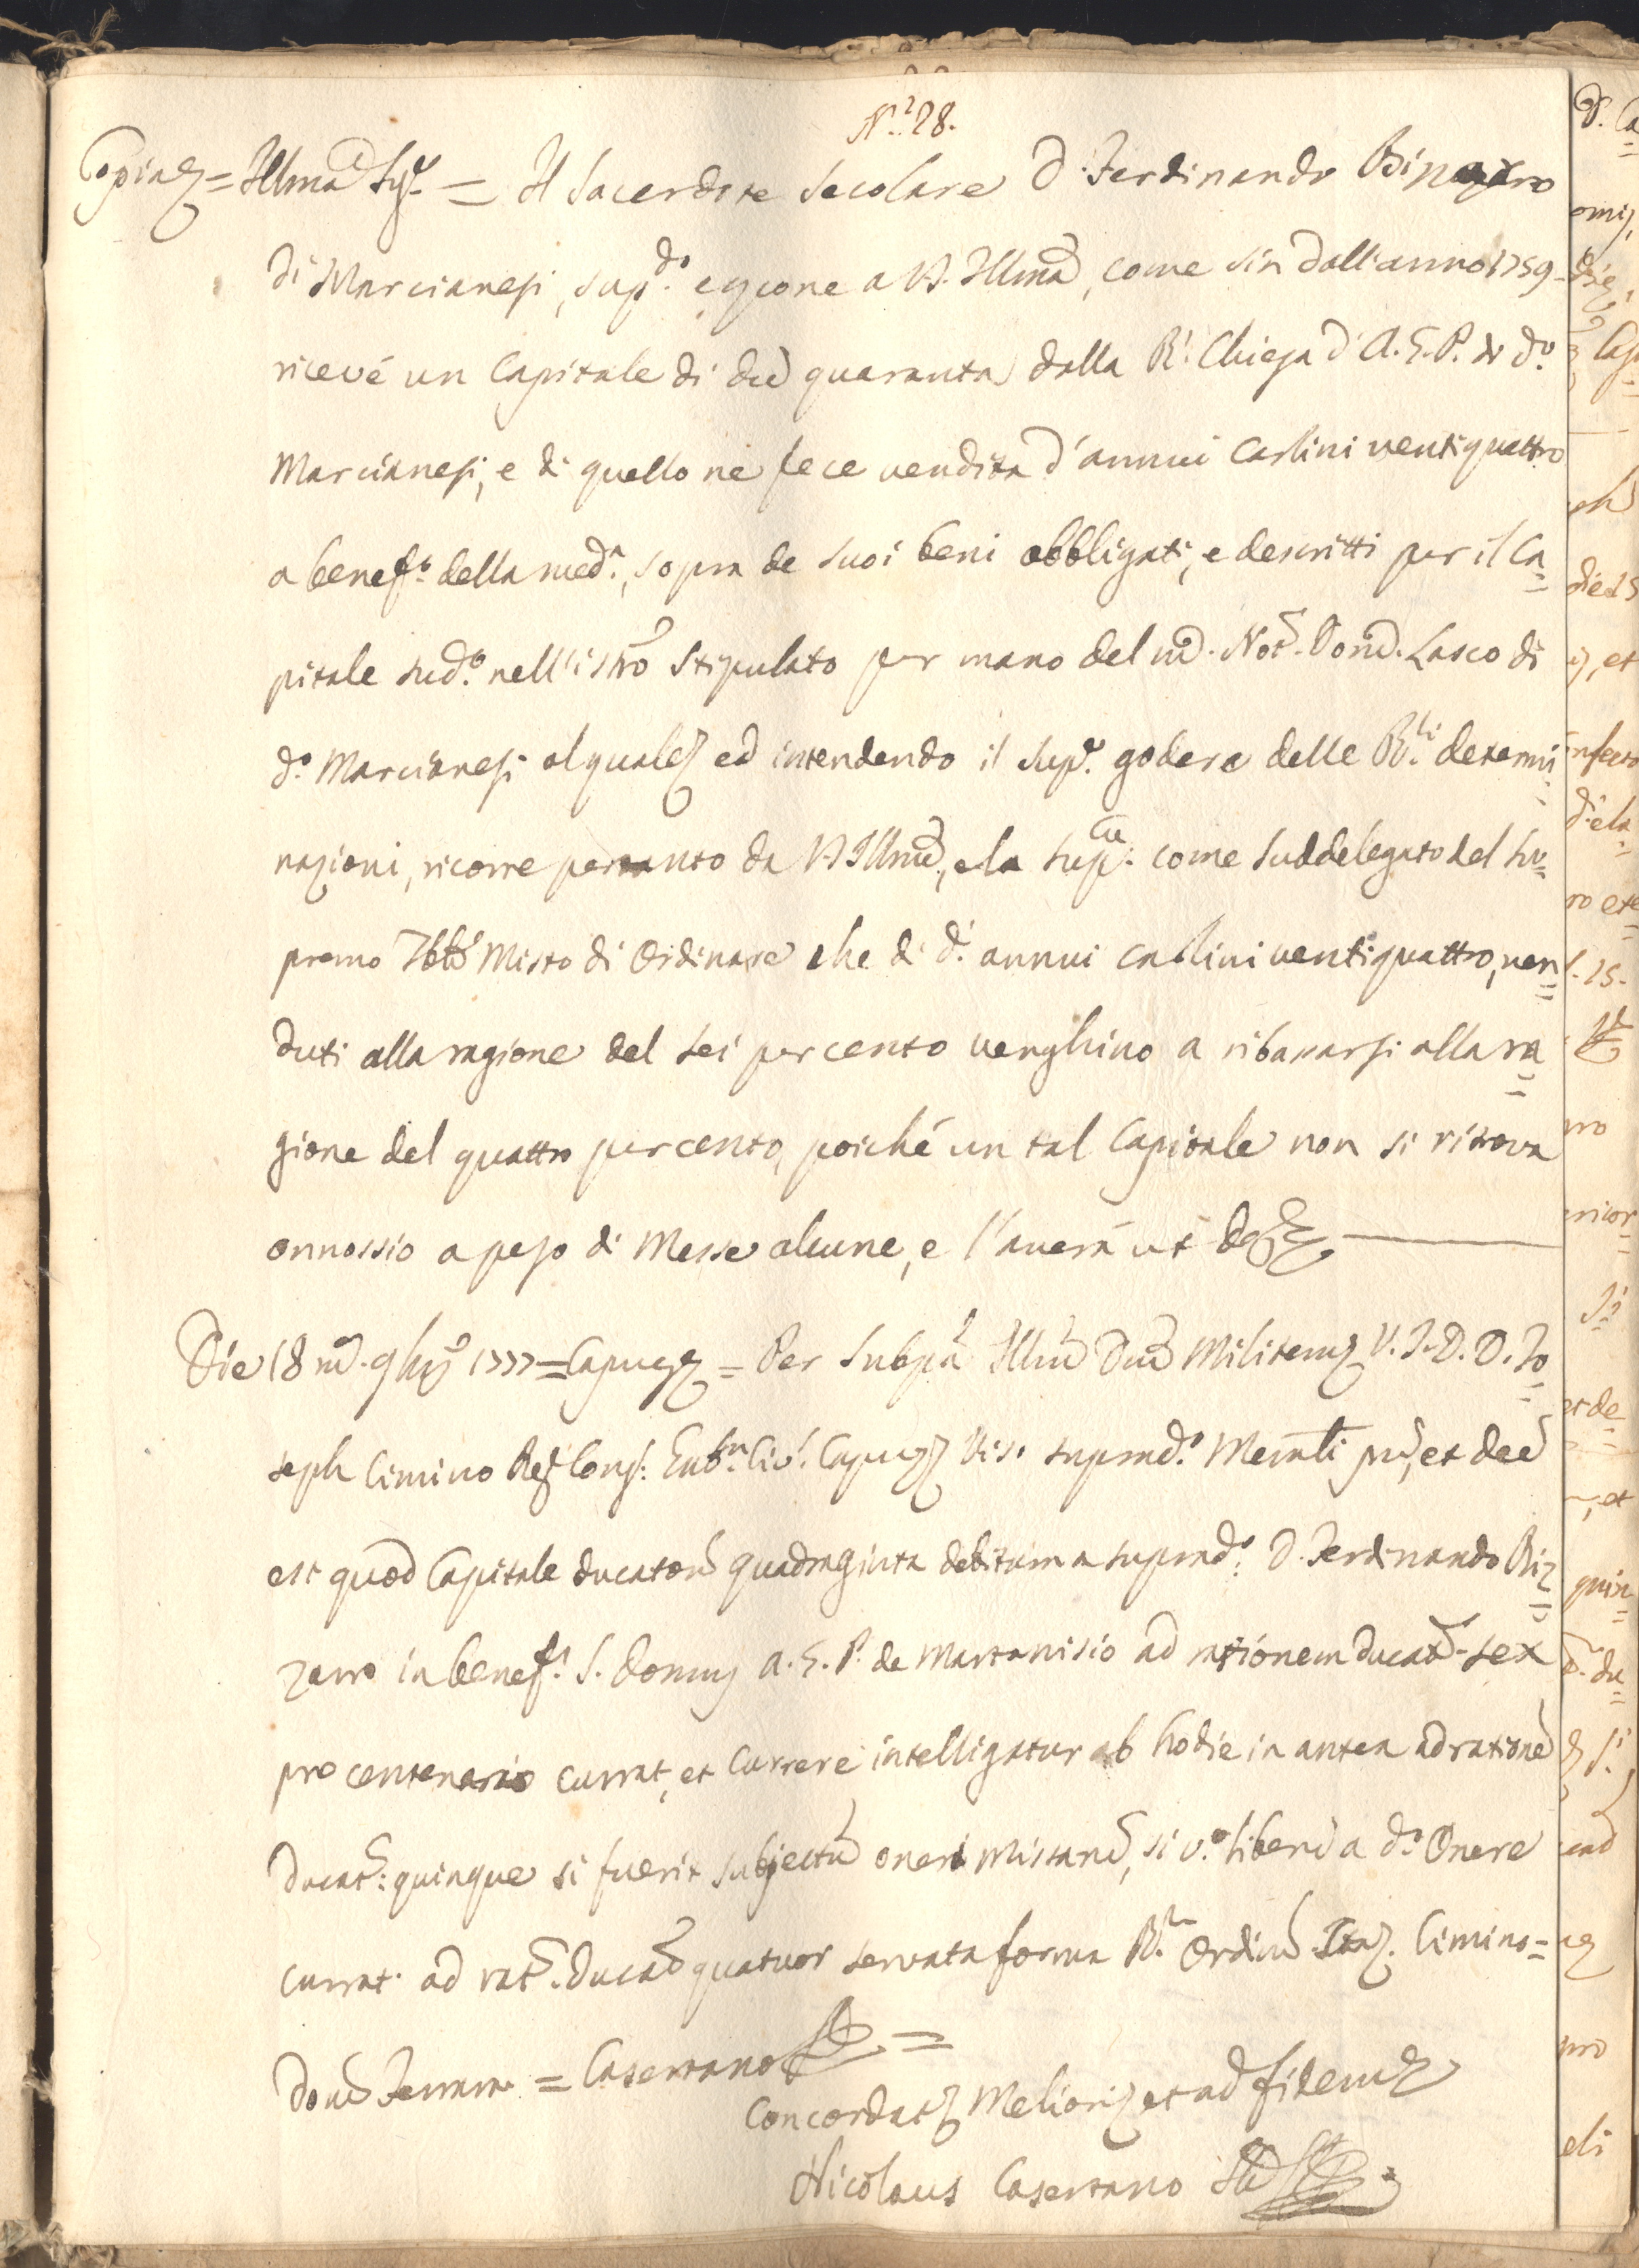 N.º 28.
Copia = Illma Sigr. = Il Sacerdote Secolare D. Ferdinando
di Marcianesi, supdo. espone a V.S. Illma, come sin dall'anno 1759.
ricevé un Capitale di dti quaranta dalla Rl. Chiesa d'A.G.P. di do.
Marcianesi, e di quello ne fece vendita d'annui Carlini ventiquattro
a benefo. della meda., sopra de suoi beni obbligati, e descritti per il Ca=
pitale sudo. nell'istro Stipulato per mano del md. Notr. Domco. Lasco di
do. Marcianesi al quale ed intendendo il Supe. godere delle Rli. determi=
nazioni, ricorre pertanto da V.S. Illma, e la supca. come Suddelegato del Su=
premo Tble Misto di Ordinare che di di. annui Carlini ventiquattro, ven=
duti alla ragione del sei per cento venghino a ribassarsi alla ra=
gione del quattro per cento, poiché un tal Capitale non si ritrova
onnossio a peso di Messe alcune, e l'averà ut Ds
Die 18 m. 9bris 1777 = Capue = Per Subptm Illm Dnm Militem U.J.D. D. Jo=
seph Cimino Reg. Cons. Gubrn. Civis. Capue Viso suprado. Memli pm, et dec
est quod Capitale ducator quadraginta debitum a suprado. D. Ferdinando Riz=
zarro in benef. S. Domus A.G.P. de Martanisio ad rationem ducator. sex
pro centenario currat, et currere intelligatur ab hodie in antea ad ratione
ducat: quinque si fuerit subjectu oneri missaru, si vo. liberu a do. Onere
currat ad rat. ducat quatuor servata forma Rl. Ordinu Ita. Cimino =
Domus Ferrara = Casertano =
Concordat Meliori et ad fidem
Nicolaus Casertano